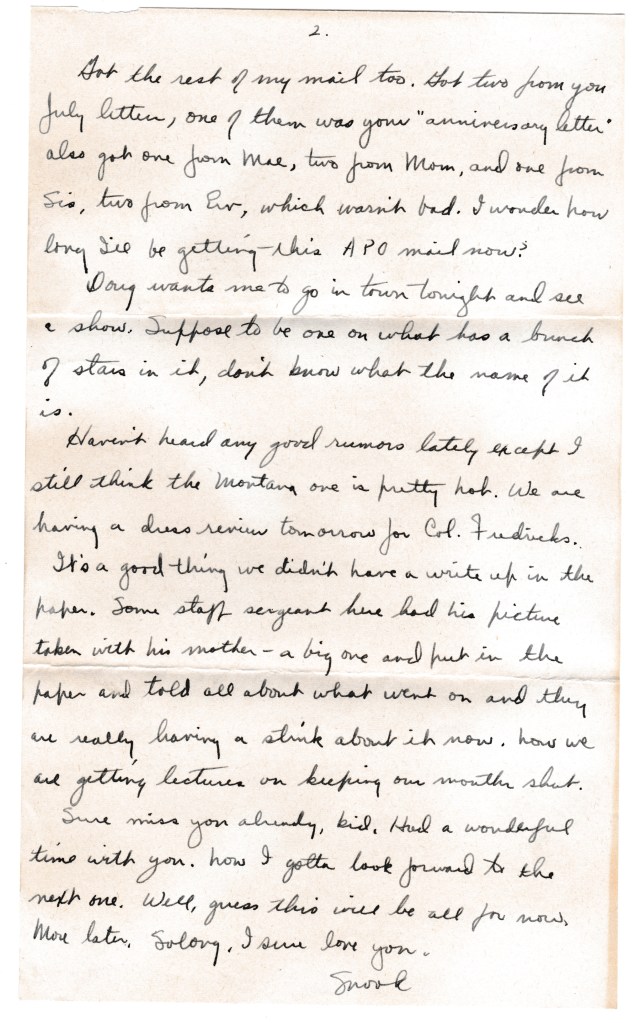 2.
Got the rest of my mail too. Got two from you
July letters, one of them was your "anniversary letter"
also got one from Mae, two from Mom, and one from
Sis, two from Erv, which wasn't bad. I wonder how
long I'll be getting this APO mail now?
Doug wants me to go in town tonight and see
a show. Suppose to be one on what has a bunch
of stars in it, don't know what the name of it
is.
Haven't heard any good rumors lately except I
still think the Montana one is pretty hot. We are
having a dress review tomorrow for Col. Fredricks.
It's a good thing we didn't have a write up in the
paper. Some staff sergeant here had his picture
taken with his mother - a big one and put in the
paper and told all about what went on and they
are really having a stink about it now. Now we
are getting lectures on keeping our mouths shut.
Sure miss you already, kid. Had a wonderful
time with you. Now I gotta look forward to the
next one. Well, guess this will be all for now.
More later. Solong, I sure love you.
Snook